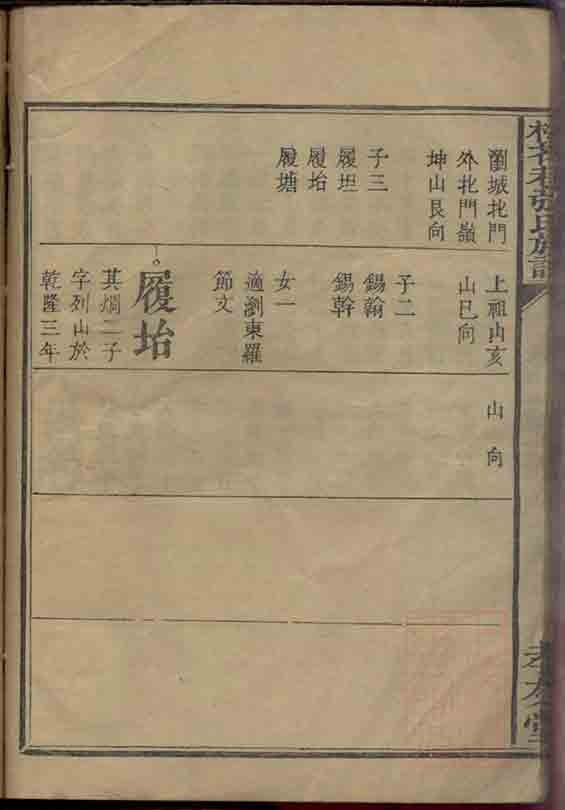 氏族譜
瀏城北門
外北門嶺
坤山艮向
子三
履坦
履坮
履塘
上祖山亥
山巳向
子二
錫翰
錫幹
女一
適瀏東羅
節文
履坮
其烱二子
字列山於
乾隆三年
山向
孝友堂